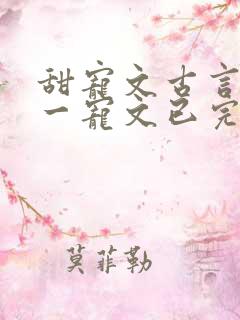 甜寵文古言
一寵文已完
莫菲勒